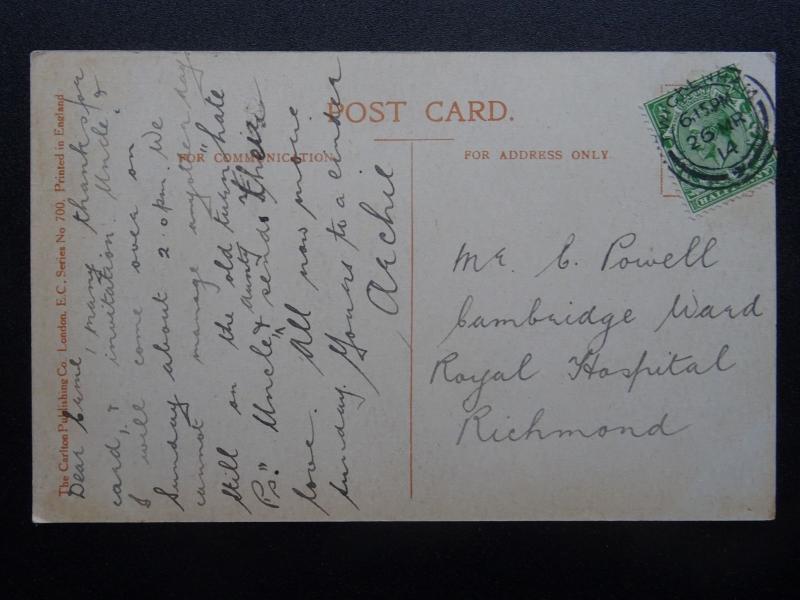 POST CARD.
FOR COMMUNICATION.
FOR ADDRESS ONLY.
The Carlton Publishing Co. London, E.C. Series No 700. Printed in England
Dear many thanks for
card, & invitation. Uncle &
I will come over on
Sunday about 2.0 pm. We
cannot manage any other day
still on "the old turn" hate
Ps. Uncle & Aunty sends their
love. All now more
Sunday. Yours to a cinder
Archie
6.15 PM
26 MR
14
Mr. C. Powell
Cambridge Ward
Royal Hospital
Richmond